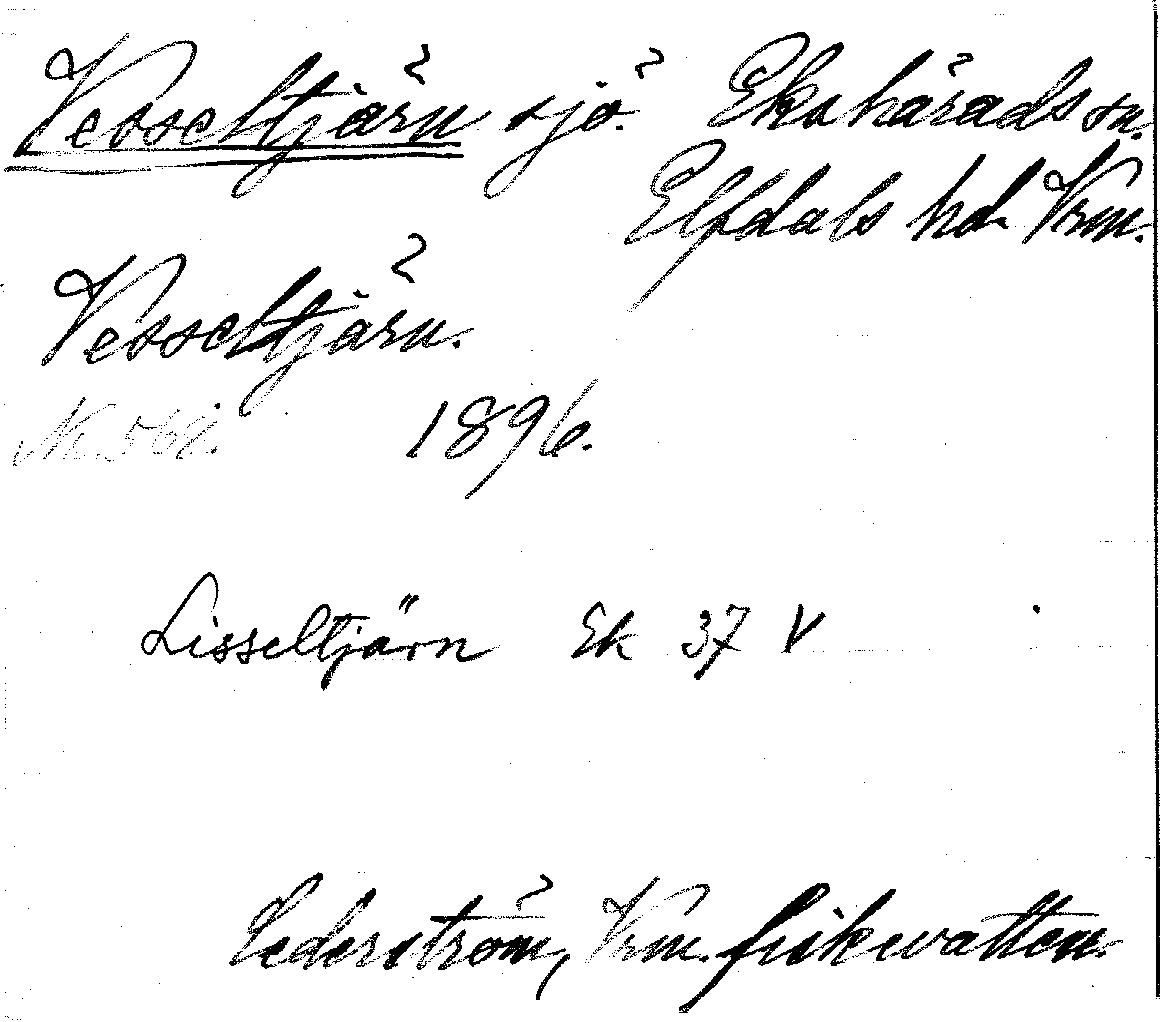 Vesseltjärn sjö. Ekshärads sn.
Elfdals hd. Vrm.
Vesseltjärn.
1896.
Lisseltjärn Ek 37 V
Cederström, Vrm. fiskevatten.